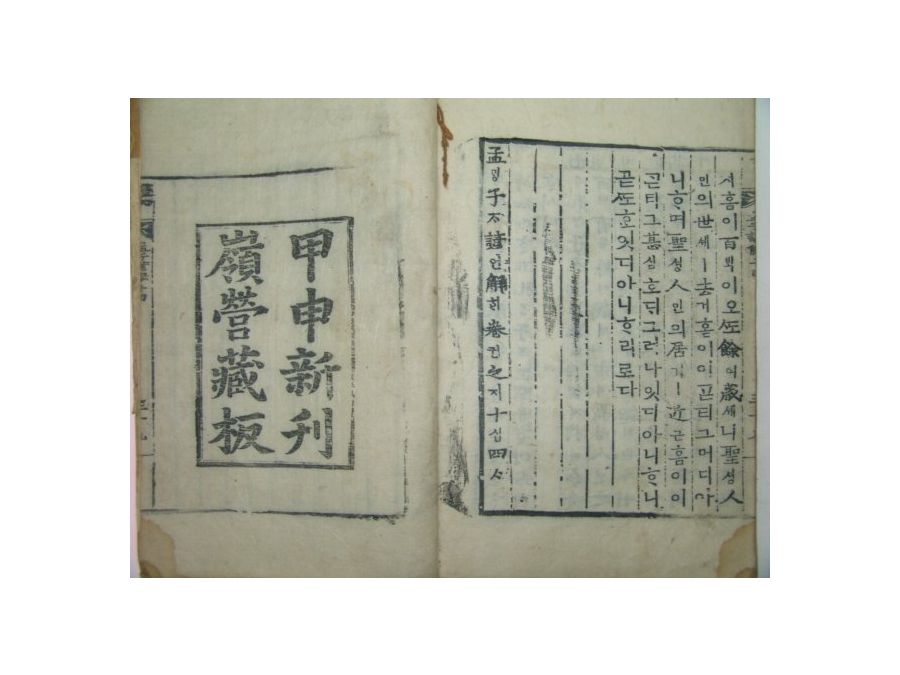 셔흠이百ᄇᆡᆨ이오ᄯᅩ餘여歲셰니聖셩人
인의世셰ㅣ去거흠이이ᄀᆞᆮ티그머디아
니ᄒᆞ며聖셩人인의居거ㅣ近근흠이이
ᄀᆞᆮ티그甚심호ᄃᆡ그러나잇디아니ᄒᆞ니
곧ᄯᅩᄒᆞᆫ잇디아니ᄒᆞ리로다
孟ᄆᆡᆼ子ᄌᆞ諺언解ᄒᆡ卷권之지十십四ᄉᆞ
甲申新刊
嶺營藏板